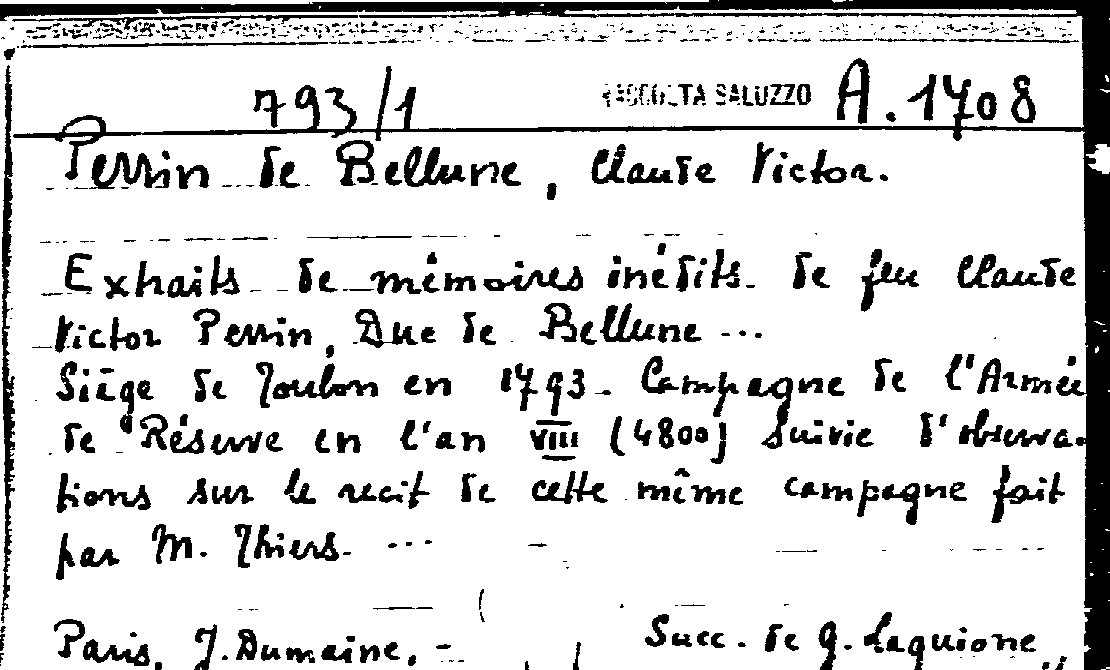 793/1 RACCOLTA SALUZZO A.1708
Perrin de Bellune, Claude Victor.
Extraits de mémoires inédits de feu Claude
Victor Perrin, Duc de Bellune ...
Siège de Toulon en 1793. Campagne de l'Armée
de Réserve en l'an VIII (1800) suivie d'observa-
tions sur le recit de cette même campagne fait
par M. Thiers. ...
Paris, J. Dumaine, - Succ. de G. Laguione,